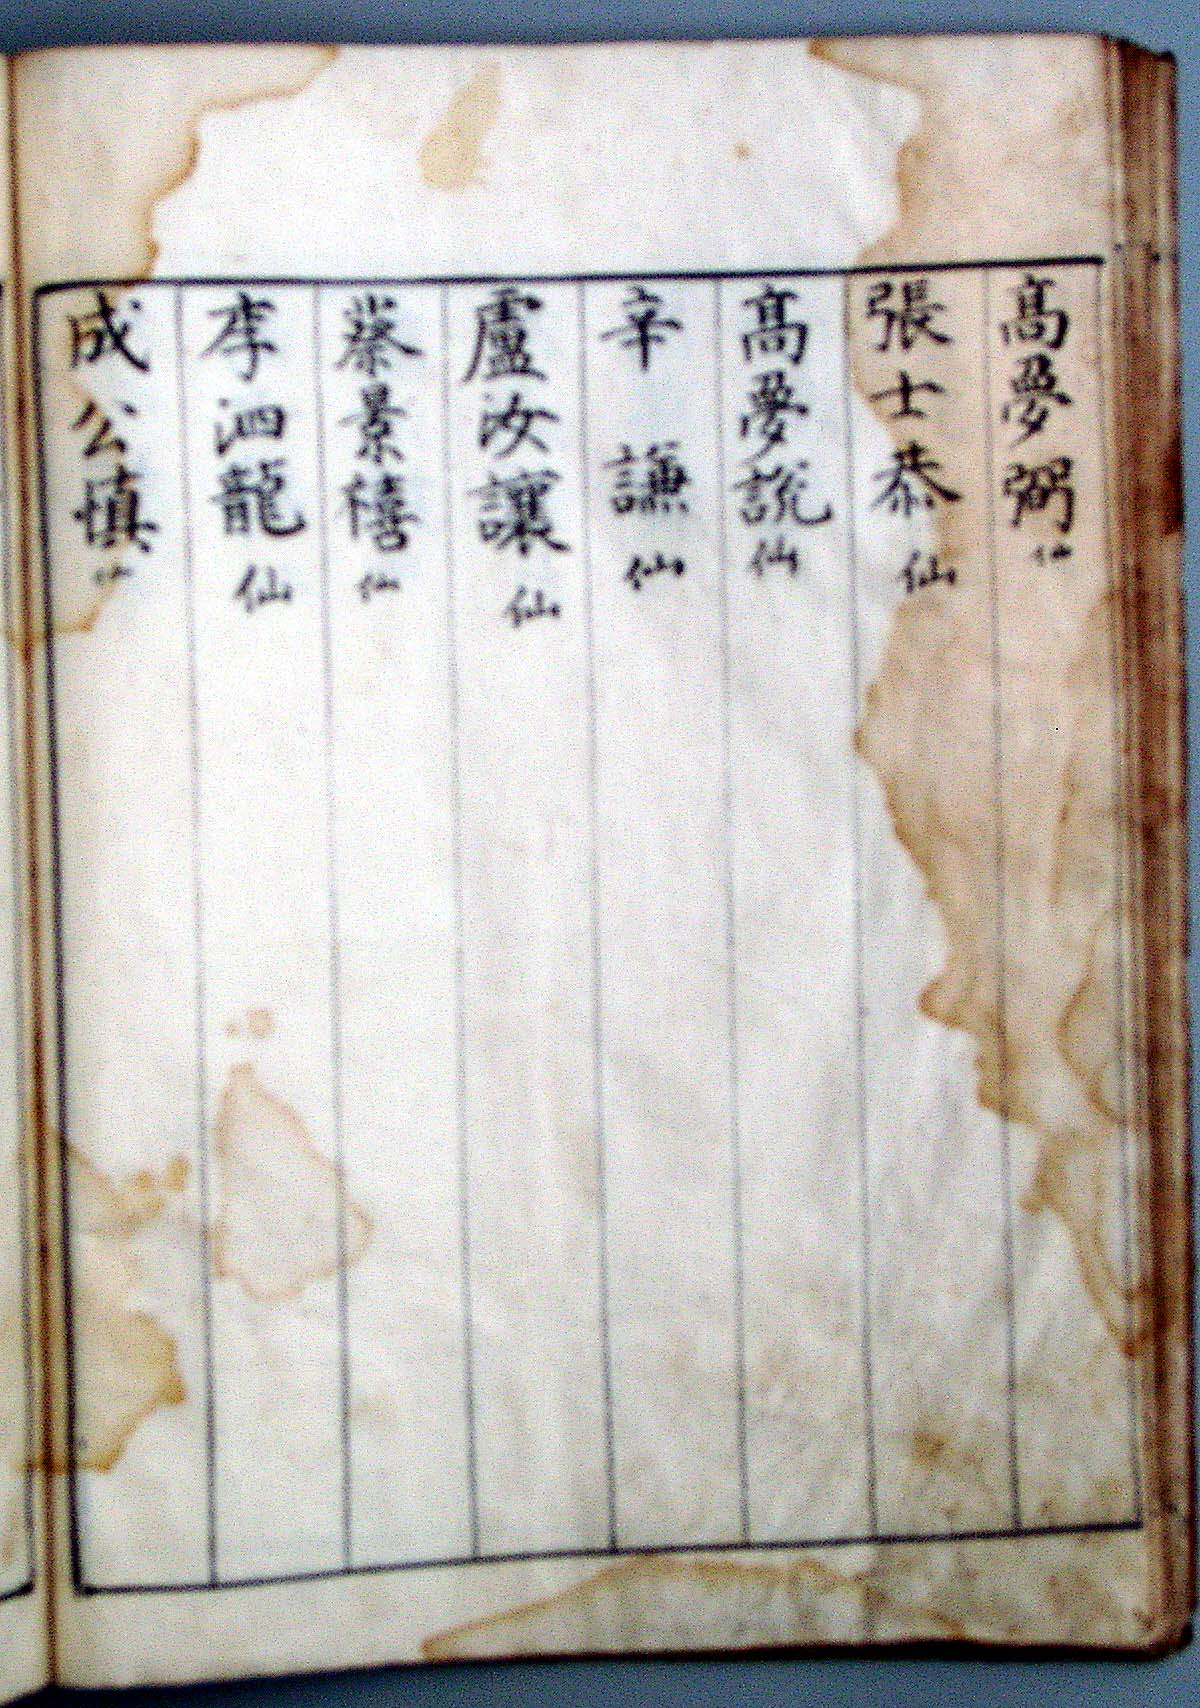 高夢弼仙
張士恭仙
高夢說仙
辛謙仙
盧汝讓仙
蔡景禧仙
李泗龍仙
成公愼仙